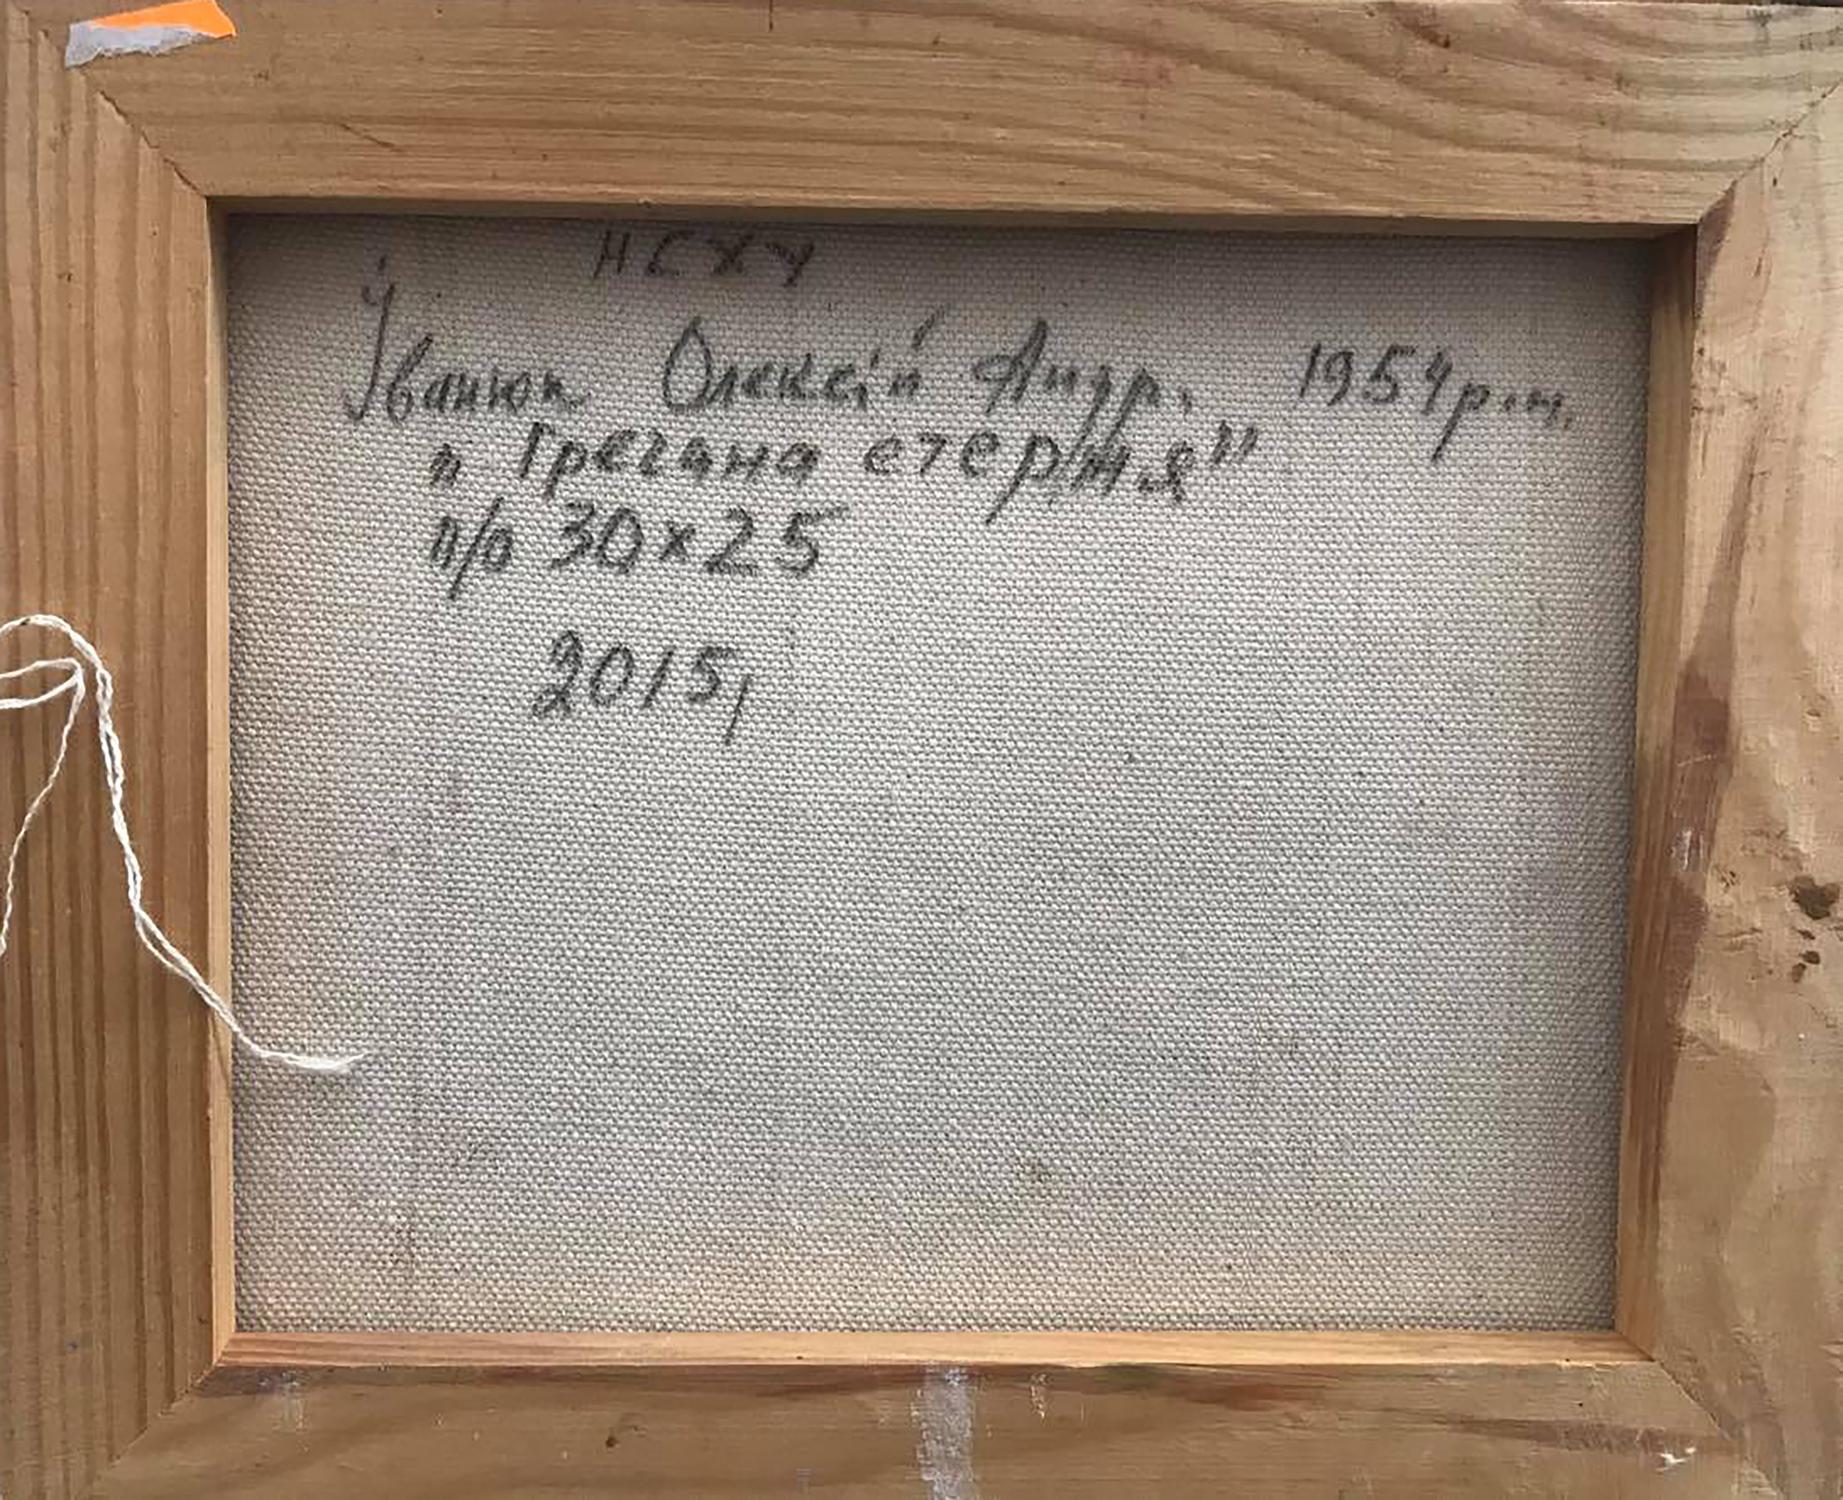 НСХУ
Іванюк Олексій Андр. 1954 р.н.
„Гречана стерня"
п/о 30х25
2015,